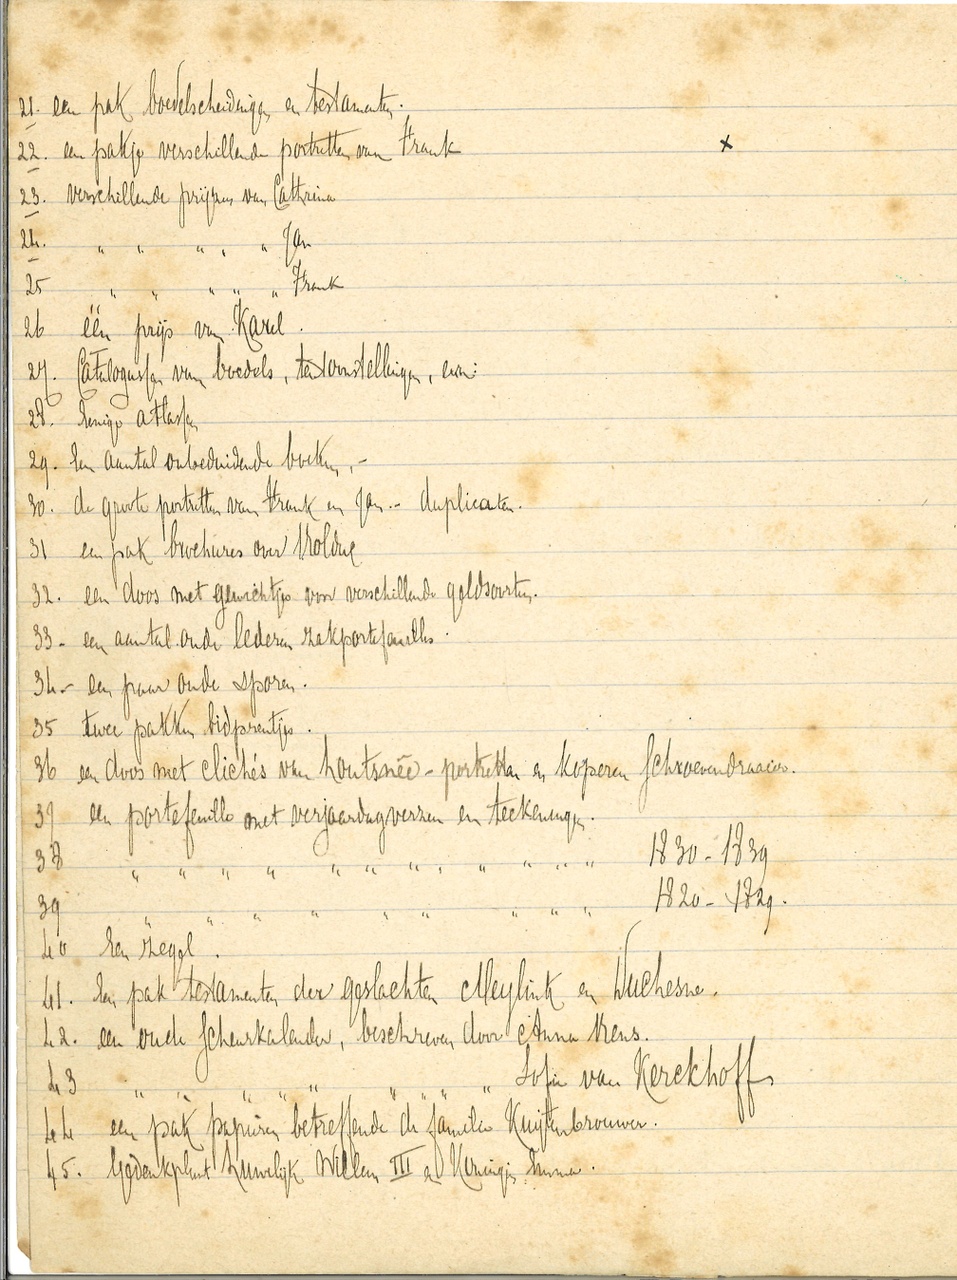 21. een pak boedelscheidingen en testamenten.
22. een pakje verschillende portretten van Frank x
23. verschillende prijzen van Cathrina
24. " " " " " Jan
25 " " " " " Frank
26 één prijs van Karel.
27. Catalogussen van boedels, tentoonstellingen, enz:
28. Eenige atlassen
29. Een aantal onbeduidende boeken,-
30. de groote portretten van Frank en Jan.- duplicaten.
31 een pak brochures over Rolduc
32. een doos met gewichtjes voor verschillende geldsoorten.
33- een aantal oude lederen zakportefeuilles.
34.- een paar oude sporen.
35 twee pakken bidprentjes.
36 een doos met clichés van houtsnee-portretten en koperen schroevendraaier.
37 een portefeuille met verjaardagverzen en teekeningen.
38 " " " " " " " " " " " " 1830-1839
39 " " " " " " " " " 1820-1829.
40 Een zegel.
41. Een pak testamenten der geslachten Meylink en Duchesne.
42. een oude scheurkalender, beschreven door Anna
43 " " " " " " " " Sofie van Kerckhoff
44 een pak papieren betreffende de familie Kuijtenbrouwer.
45. Gedenkplaat huwelijk Willem III en Koningin Emma.